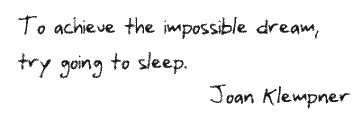 To achieve the impossible dream,
try going to sleep.
Joan Klempner